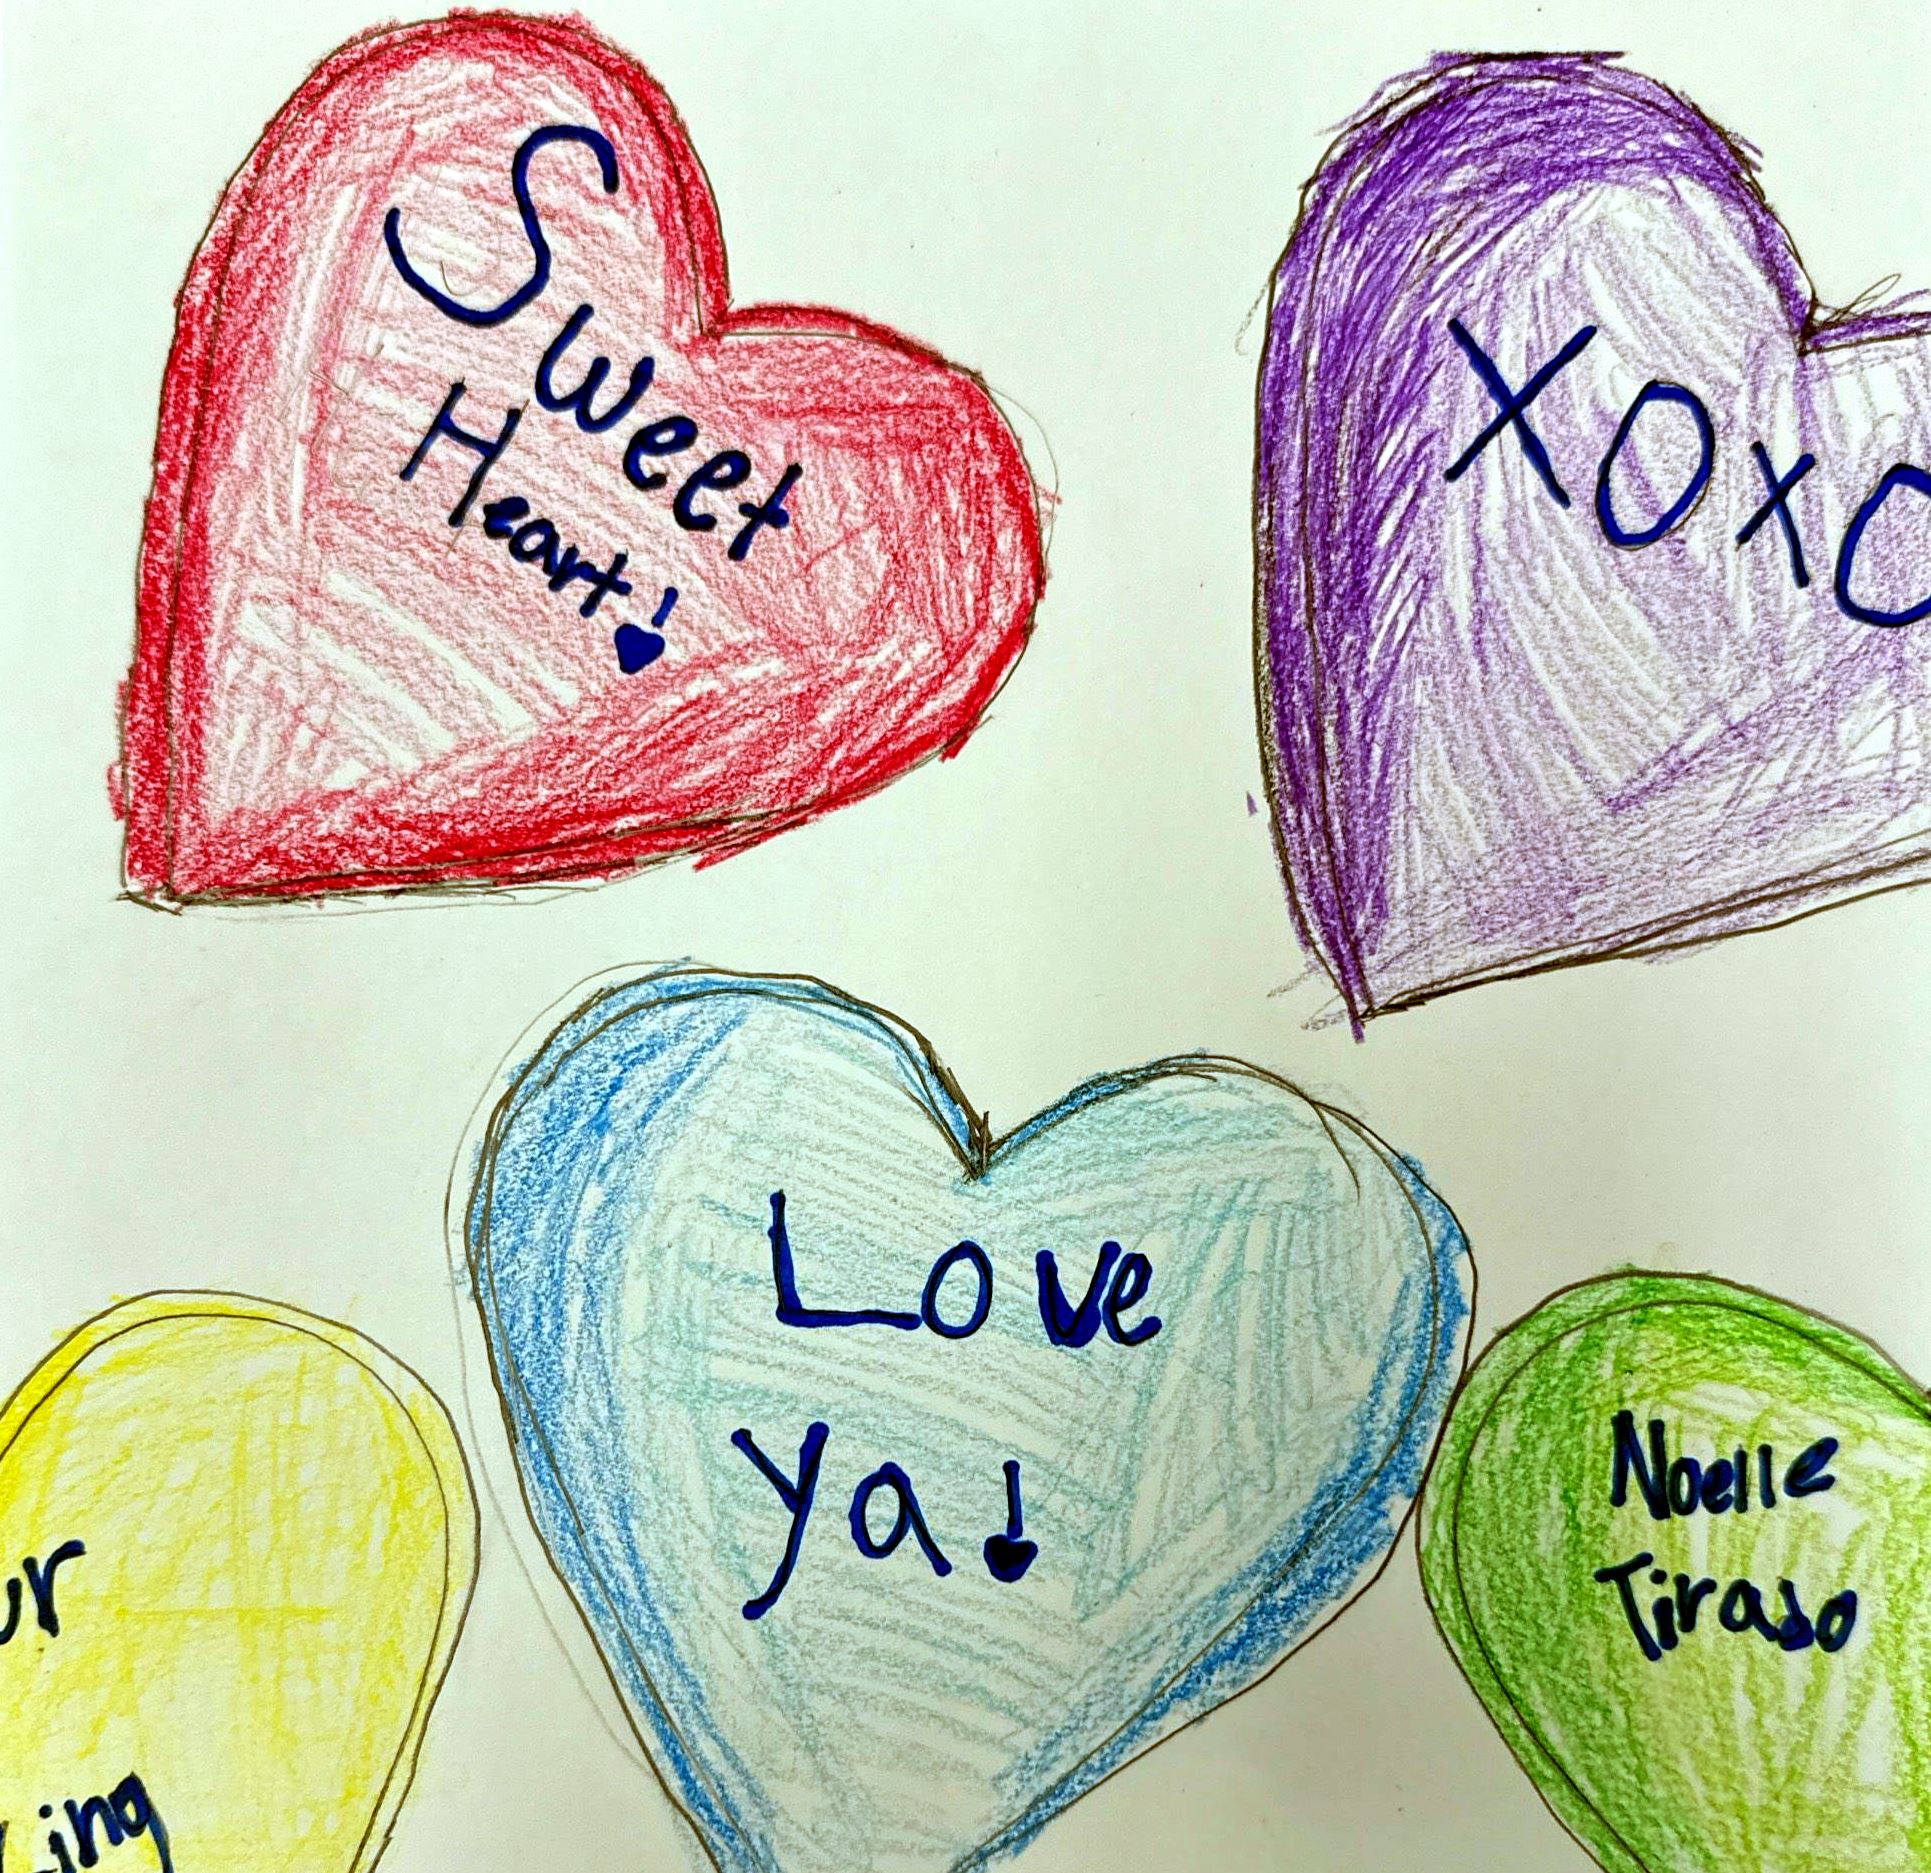 Sweet
Heart!
XOXO
Love
ya!
Noelle
Tirado
ur
Ling